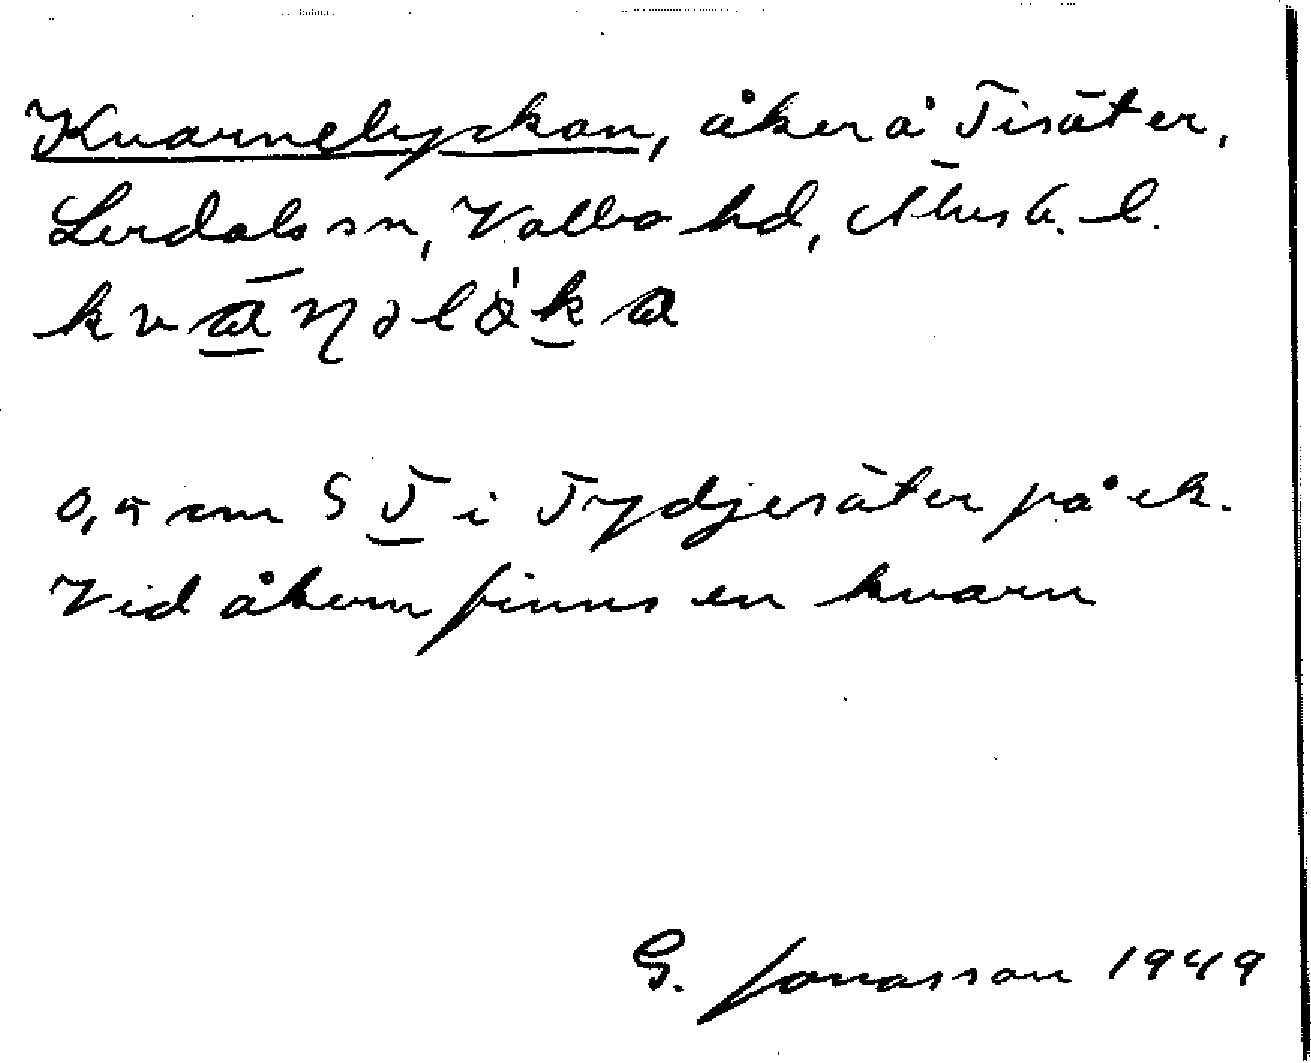 Kvarnelyckan, åker å Tisäter,
Lerdals sn, Valbo hd, Älvsb. l.
0,5 cm S T i Tydjesäter på ek.
Vid åkern finns en kvarn
G. Jonasson 1949